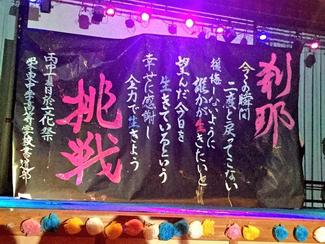 刹那
今この瞬間
二度と戻ってこない
後悔しないように
誰かが生きたいと
望んだ今日を
生きているという
幸せに感謝し
全力で生きよう
挑戦
栄東中学高等学校書道部